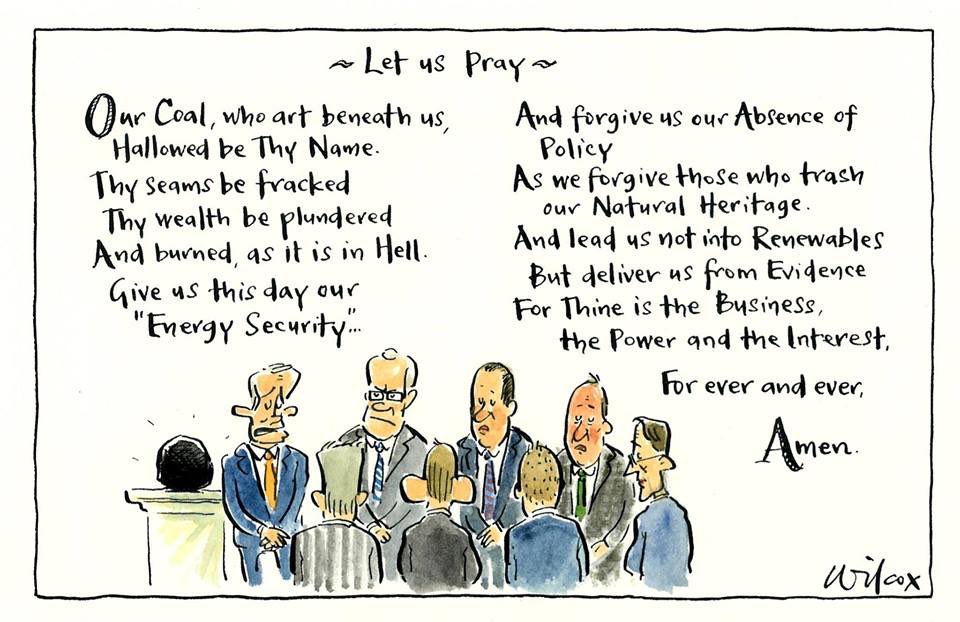 ~ Let us Pray ~
Our Coal, who art beneath us,
Hallowed be Thy Name.
Thy seams be fracked
Thy wealth be plundered
And burned, as it is in Hell.
Give us this day our
"Energy Security"...
And forgive us our Absence of
Policy
As we forgive those who trash
our Natural Heritage.
And lead us not into Renewables
But deliver us from Evidence
For Thine is the Business,
the Power and the Interest,
For ever and ever,
Amen.
Wilcox